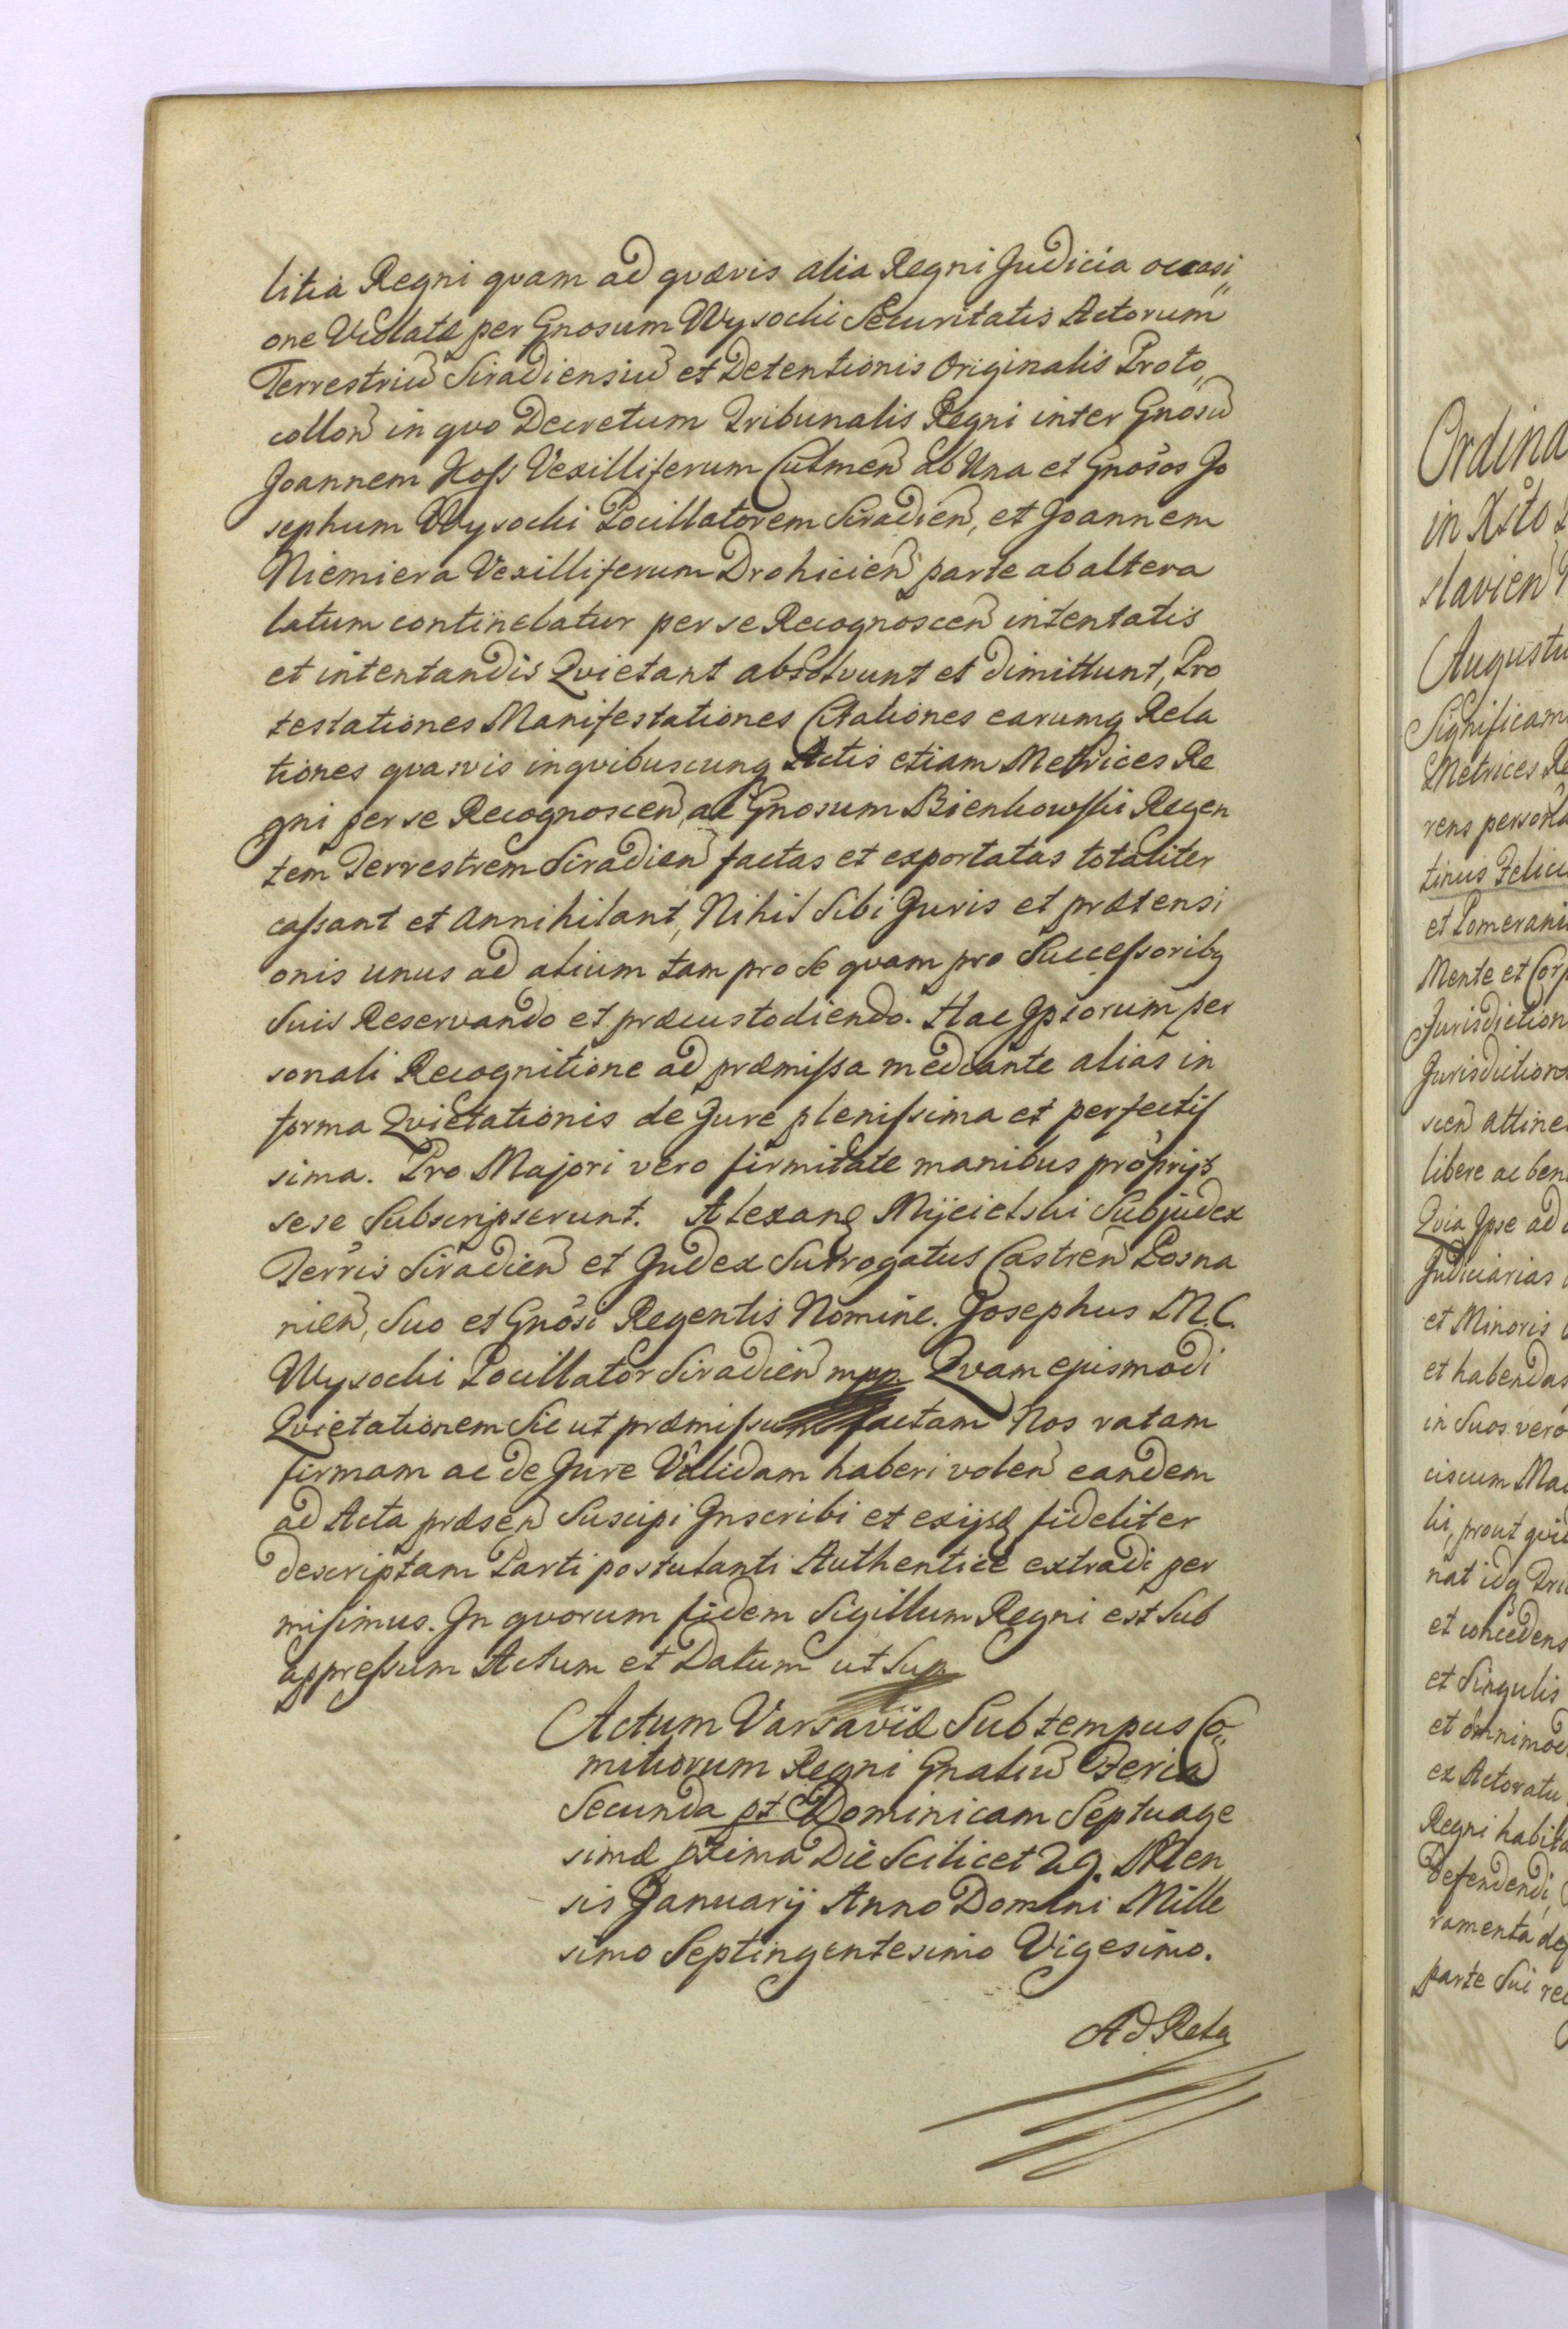 litia Regni quam ad quævis alia Regni Judicia occasi„
one Violatæ per Gnosum Wysocki Securitatis Actorum
Terrestriū Siradiensiū et Detentionis Originalis Proto„
collon̄ in quo Decretum Tribunalis Regni inter Gnosū
Joannem Koſs Vexilliferum Culmen̄ ab Una et Gnosos Jo
sephum Wysocki Pocillatorem Siradien̄, et Joannem
Niemiera Vexilliferum Drohicien̄ parte ab altera
latum continebatur per se Recognoscen̄ intentatis
et intentandis Quietant absolvunt et dimittunt, Pro
testationes Manifestationes Citationes earumq Rela
tiones quasvis in quibuscunq Actis etiam Metrices Re
gni per se Recognoscen̄, ac Gnosum Bienkowſki Regen
tem Terrestrem Siradien̄ factas et exportatas totaliter
caſsant et Annihilant, Nihil Sibi Juris et prætensi
onis unus ad alium tam pro se quam pro Succeſsoribq
Suis Reservando et præcustodiendo. Hac Ipsorum per
sonali Recognitione ad præmiſsa mediante alias in
forma Quietationis de Jure pleniſsima et perfectiſ
sima. Pro Majori vero firmitate manibus proprijs
sese Subscripserunt. Alexand Mijcielski Subjudex
Terris Siradien̄ et Judex Surrogatus Castren̄ Posna
nien̄, Suo et Gnosi Regentis Nomine. Josephus M.C.
Wysocki Pocillator Siradien̄ mpp. Quam ejusmodi
Quietationem Sic ut præmiſsum factam Nos ratam
firmam ac de Jure Validam haberi volen̄ eandem
ad Acta præsen̄ Suscipi Inscribi et exijsd fideliter
descriptam Parti postulanti Authentice extradi per
miſimus. In quorum fidem Sigillum Regni est Sub
appreſsum Actum et Datum ut Sup
Actum Varsaviæ Sub tempus Co„
mitiorum Regni Gnaliū Feria
Secunda pt Dominicam Septuage
simæ prima Die Scilicet 29. Men
sis Januarij Anno Domini Mille
simo Septingentesimo Vigesimo.
Ad Rela
Ordina
in Xsto
slavien̄
Augustu
Significam
Metrices Re
rens person
tinus Felici
et Pomerani
Mente et Corp
Jurisdiction
Jurisdiction
scen̄ attine
libere ac ben
Quia Ipse ad
Judiciarias
et Minoris
et habendas
in Suos vero
ciscum Ma
li, prout qui
nat idq
et concedens
et Singulis
et omnimod
ex Actoratu
Regni habita
defendendi
ramenta deſ
parte Sui re